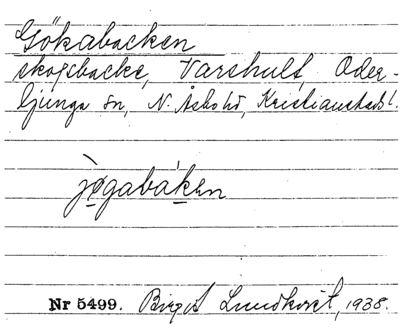 Gökabacken
skogsbacke, Varshult, Oder-
ljunga sn, N. Åsbo hd, Kristianstads l.
jøgabaken
Nr 5499. Birgit Lundkvist, 1938.